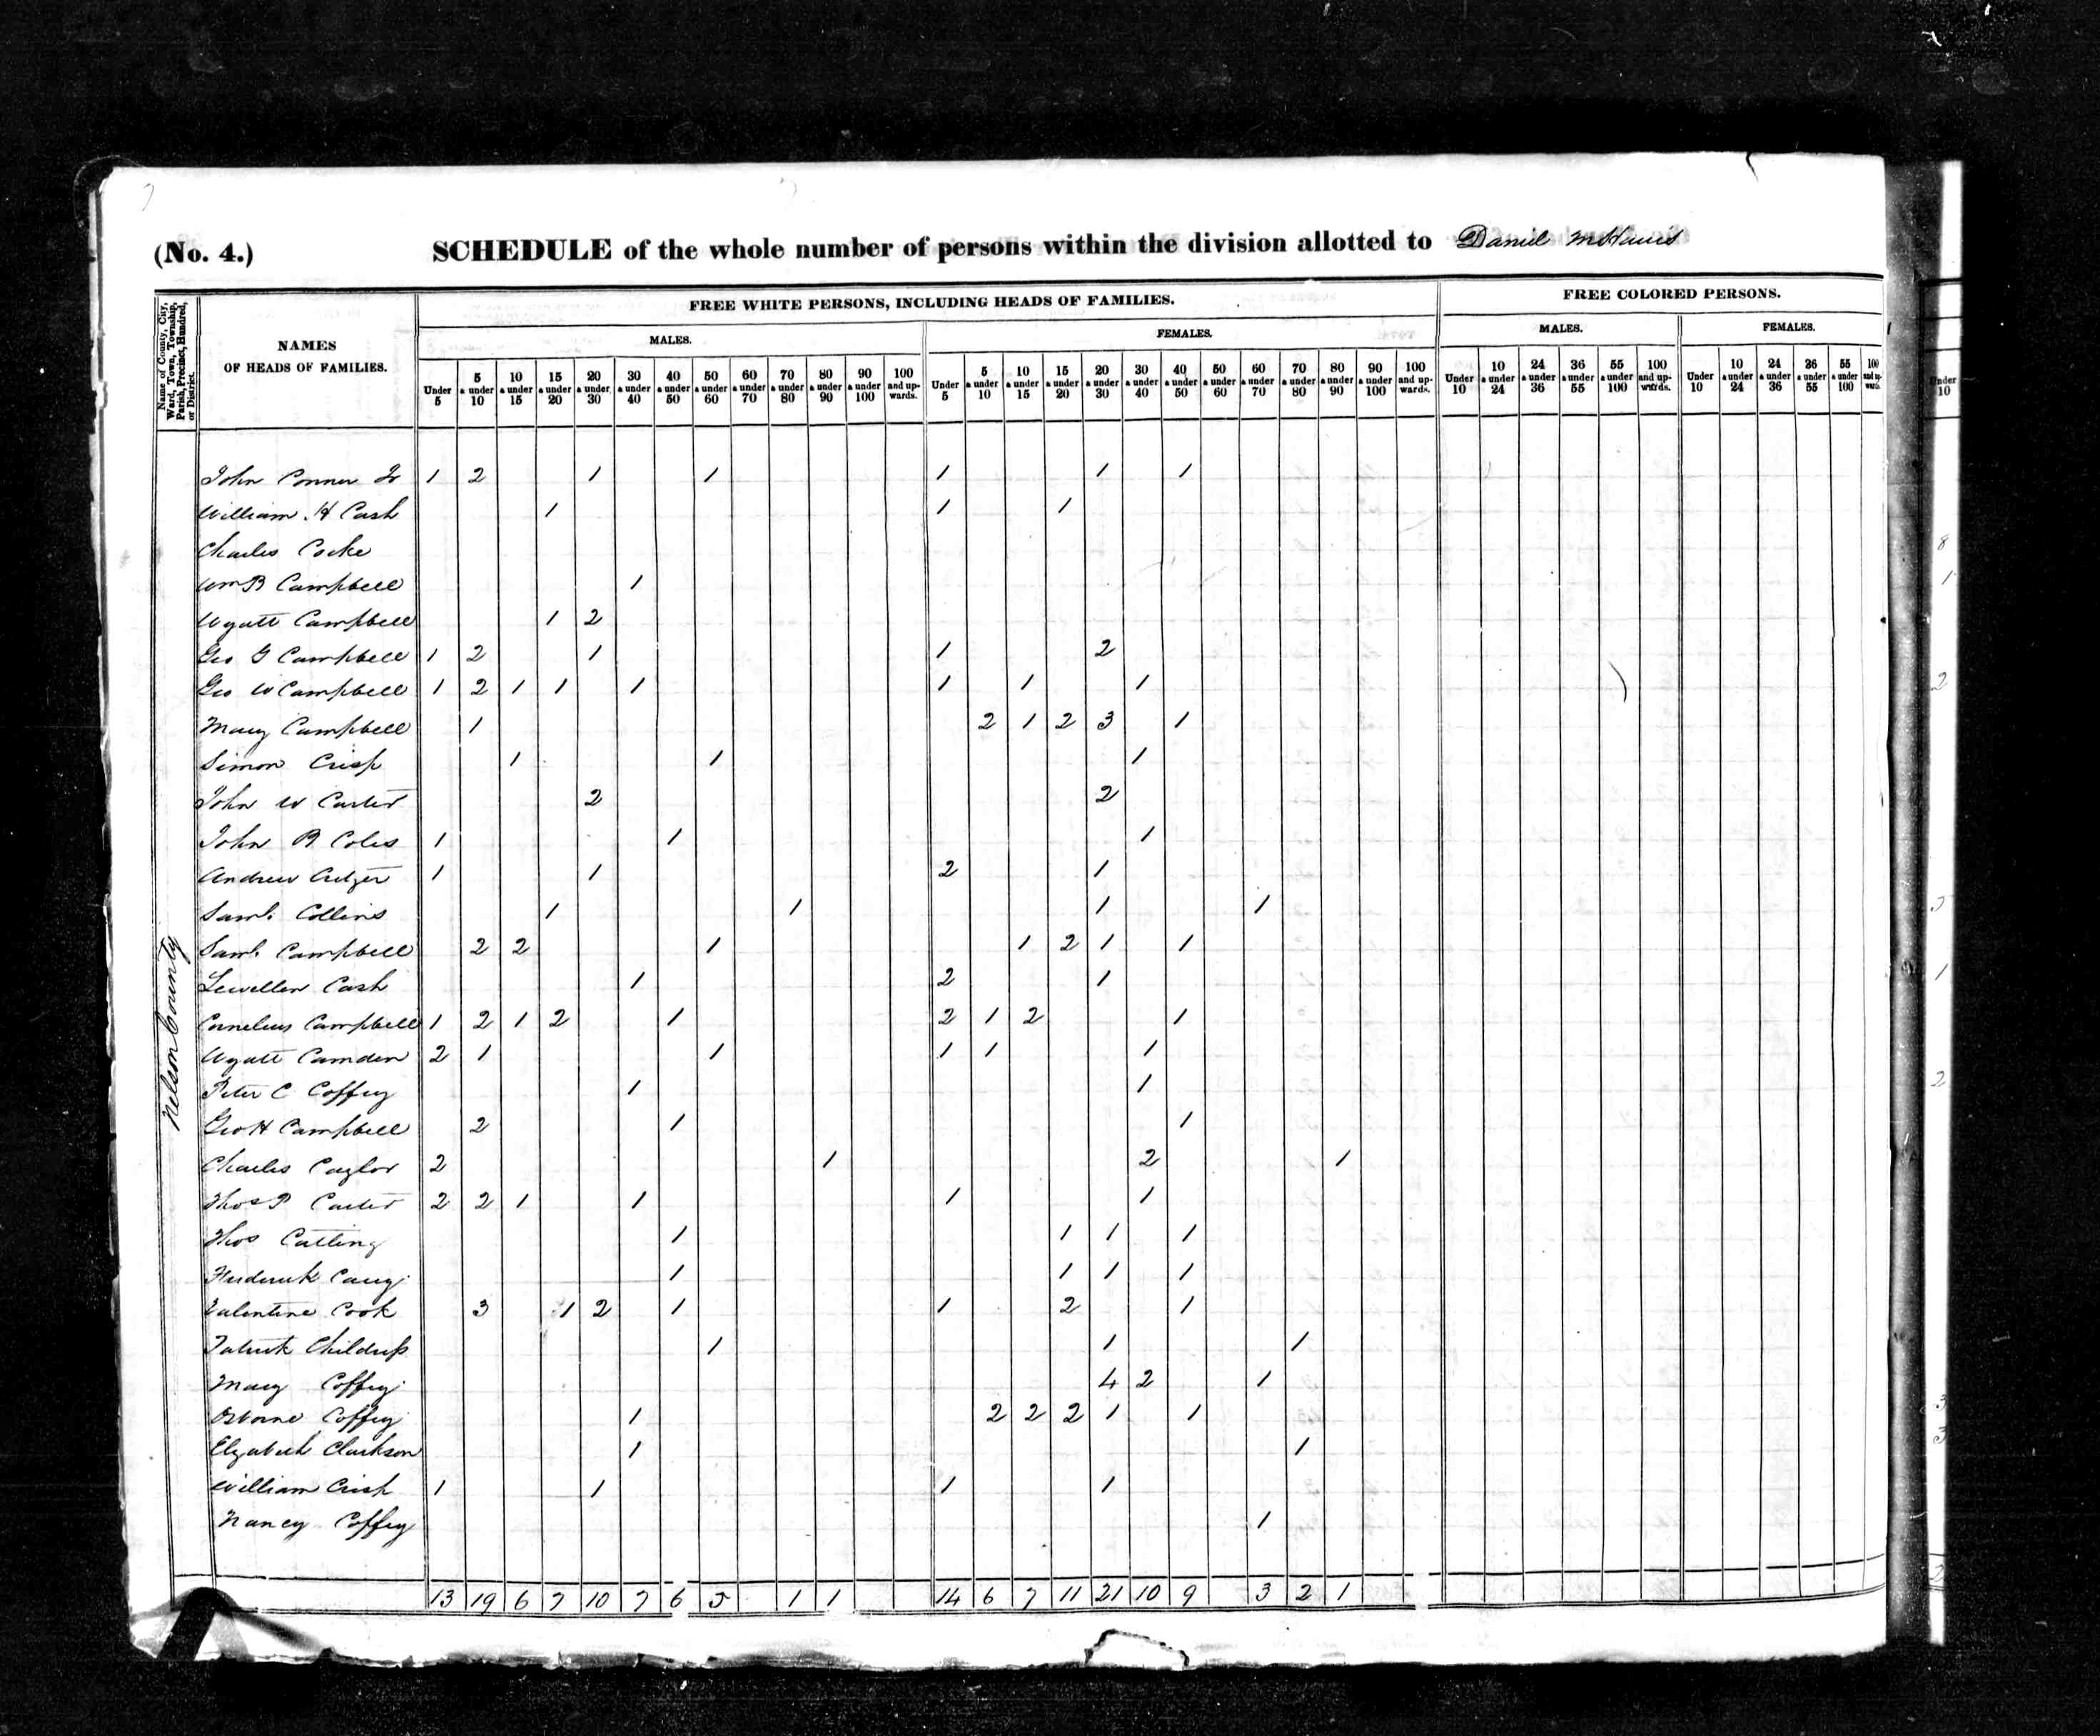 (No. 4.) SCHEDULE of the whole number of persons within the division allotted to Daniel
Name of County, City, Ward, Town, Township, Parish, Precinct, Hundred, or District.
NAMES OF HEADS OF FAMILIES.
FREE WHITE PERSONS, INCLUDING HEADS OF FAMILIES.
FREE COLORED PERSONS.
MALES. FEMALES. MALES. FEMALES.
Under 5 5 & under 10 10 & under 15 15 & under 20 20 & under 30 30 & under 40 40 & under 50 50 & under 60 60 & under 70 70 & under 80 80 & under 90 90 & under 100 100 and upwards. Under 5 5 & under 10 10 & under 15 15 & under 20 20 & under 30 30 & under 40 40 & under 50 50 & under 60 60 & under 70 70 & under 80 80 & under 90 90 & under 100 100 and upwards. Under 10 10 & under 24 24 & under 36 36 & under 55 55 & under 100 100 and upwards. Under 10 10 & under 24 24 & under 36 36 & under 55 55 & under 100 Under 10
Nelson County
John Conner 1 2 1 1 1 1 1
William H Cash 1 1 1
Charles Cocke
Wm B Campbell 1
Wyatt Campbell 1 2
Geo G Campbell 1 2 1 1 2
Geo W Campbell 1 2 1 1 1 1 1 1
Mary Campbell 1 2 1 2 3 1
Simon Crisp 1 1 1
John W Carter 2 2
John B Coles 1 1 1
Andrew 1 1 2 1
Saml. Collins 1 1 1 1
Saml. Campbell 2 2 1 1 2 1 1
Lewellen Cash 1 2 1
Cornelius Campbell 1 2 1 2 1 2 1 2 1
Wyatt Camden 2 1 1 1 1 1
Peter C Coffey 1 1
Geo H Campbell 2 1 1
Charles 2 1 2 1
Thos P Carter 2 2 1 1 1 1
Thos 1 1 1 1
Frederick 1 1 1 1
Valentine Cook 3 1 2 1 1 2 1
Patrick Childress 1 1 1
Mary Coffey 4 2 1
Osborne Coffey 1 2 2 2 1 1
Elizabeth Clarkson 1 1
William Crisp 1 1 1 1
Nancy Coffey 1
13 19 6 7 10 7 6 5 1 1 14 6 7 11 21 10 9 3 2 1